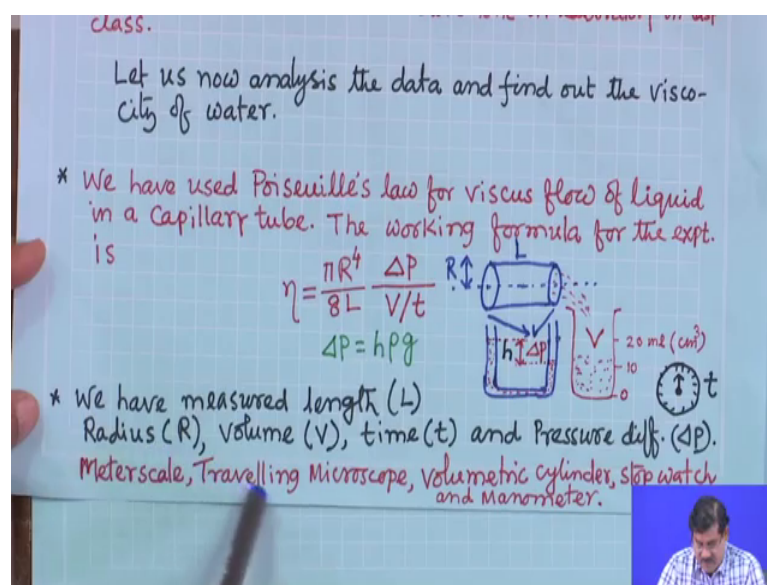 class.
Let us now analysis the data and find out the visco-
city of water.
* We have used Poiseuille's law for viscus flow of liquid
in a Capillary tube. The working formula for the expt.
is
η = πR⁴/8L ΔP/V/t
ΔP = hρg
L
R
h ΔP
V
20 ml (cm³)
10
0
t
* We have measured length (L)
Radius (R), Volume (V), time (t) and Pressure diff. (ΔP).
Meterscale, Travelling Microscope, volumetric cylinder, stop watch
and Manometer.